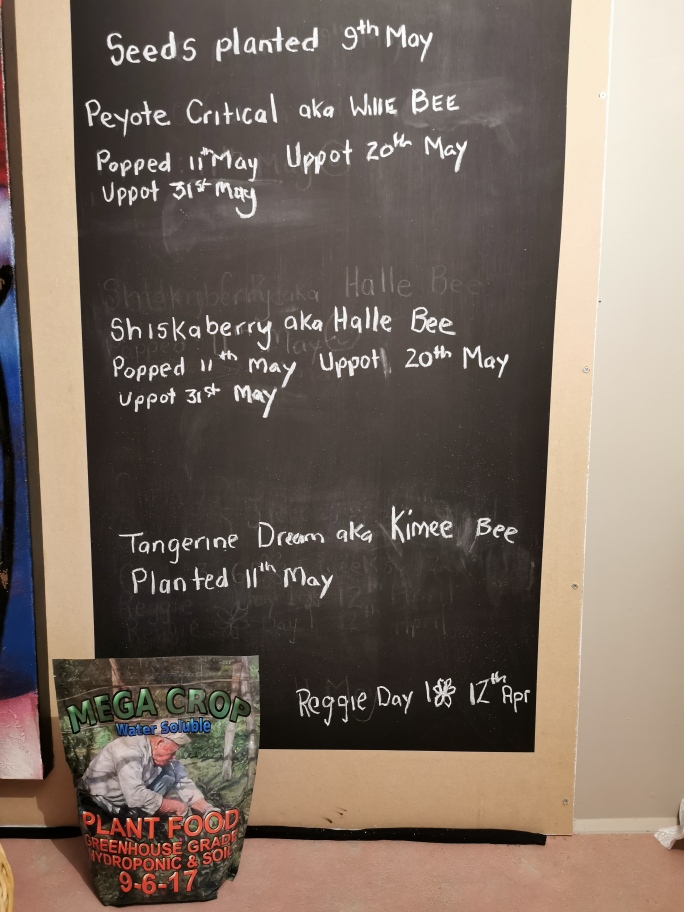 Seeds planted 9th May
Peyote Critical aka Willie BEE
Popped 11th May Uppot 20th May
Uppot 31st May
Shiskaberry aka Halle Bee
Shiskaberry aka Halle Bee
Popped 11th May Uppot 20th May
Uppot 31st May
Tangerine Dream aka Kimee Bee
Planted 11th May
Reggie Day 1 12th Apr
MEGA CROP
Water Soluble
PLANT FOOD
GREENHOUSE GRADE
HYDROPONIC & SOIL
9-6-17